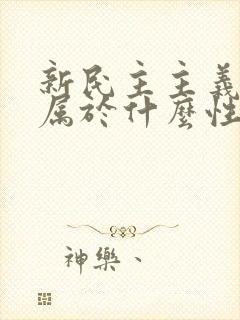 新民主主義
属於什麼性
神樂、